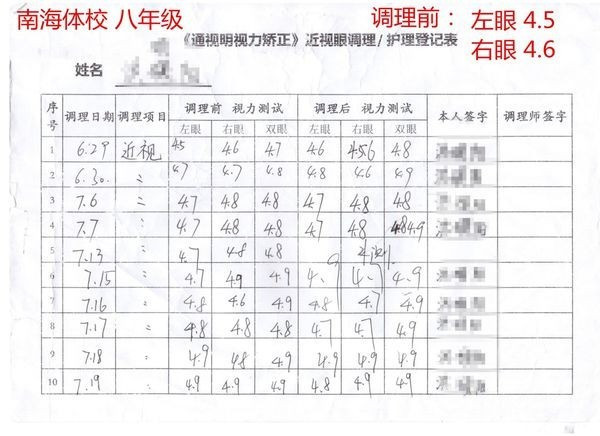 南海体校 八年级
调理前： 左眼 4.5
右眼 4.6
《通视明视力矫正》近视眼调理/护理登记表
姓名
序号 调理日期 调理项目 调理前 视力测试 调理后 视力测试 本人签字 调理师签字
左眼 右眼 双眼 左眼 右眼 双眼
1 6.29 近视 4.5 4.6 4.7 4.6 4.8
2 6.30. 〃 4.7 4.7 4.8 4.8 4.6 4.9
3 7.6 〃 4.7 4.8 4.8 4.7 4.8 4.8
4 7.7 〃 4.7 4.8 4.8 4.7 4.8 4.8 4.9
5 7.13 〃 4.7 4.8 4.8
6 7.15 〃 4.7 4.9 4.9 4.9
7 7.16 〃 4.8 4.6 4.9 4.8 4.7 4.9
8 7.17 〃 4.8 4.8 4.8 4.7 4.7 4.9
9 7.18 〃 4.9 4.8 4.9 4.9 4.9 4.9
10 7.19 〃 4.9 4.9 4.9 4.8 4.9 4.9